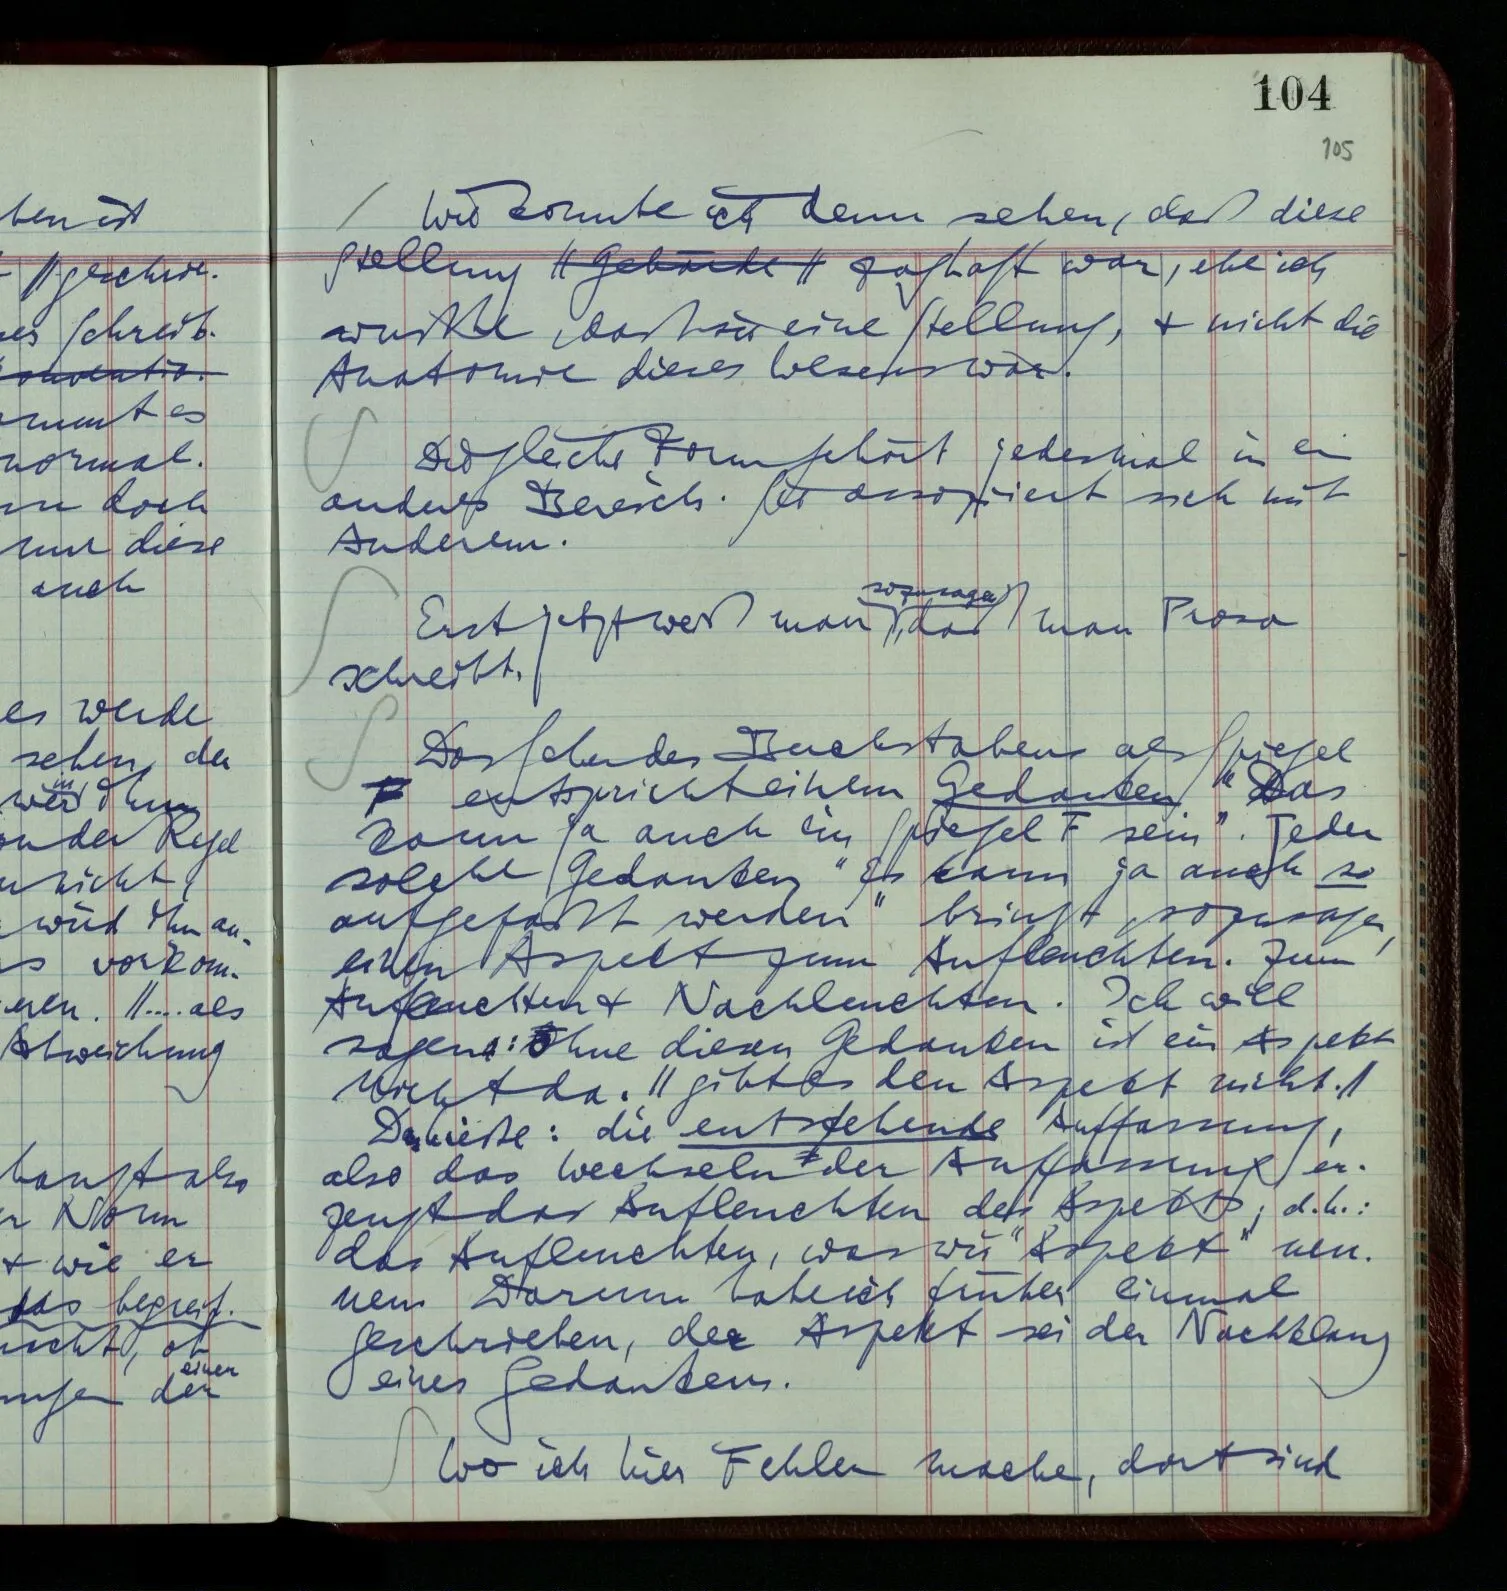 ben ist
// geschrie-
ses Schreib-
Konventio-
kommt es
normal.
doch
nur diese
auch
es werde
sehen, der
in
wird ihm
von der Regel
nicht,
wird ihm an-
vorkom-
//.... als
Abweichung
hängt also
Norm
+ wie er
das begreif-
nicht, ob
einer
der
104
105
/ Wie konnte ich denn sehen, daß diese
Stellung // Gebärde // zaghaft war, ehe ich
wußte, daß sie eine Stellung, + nicht die
Anatomie dieses Wesens war.
∫ Die gleiche Form gehört jedesmal in ein
anderes Bereich. Sie assoziiert sich mit
Anderem.
sozusagen
∫ Erst jetzt weiß man, daß man Prosa
schreibt.
∫ Das Sehen des Buchstabens als Spiegel
F entspricht einem Gedanken "Das
kann ja auch ein Spiegel F sein". Jeder
solche Gedanken "Es kann ja auch so
aufgefaßt werden" bringt, sozusagen,
einen Aspekt zum Aufleuchten. Zum
Aufleuchten + Nachleuchten. Ich will
sagen: Ohne diesen Gedanken ist ein Aspekt
nicht da. // gibt es den Aspekt nicht. //
Das hieße: die entstehende Auffassung,
also das Wechseln der Auffassung er-
zeugt das Aufleuchten des Aspekts, d.h.:
das Aufleuchten, was wir "Aspekt" nen-
nen. Darum habe ich früher einmal
geschrieben, der Aspekt sei der Nachklang
eines Gedankens.
∫ Wo ich hier Fehler mache, dort sind